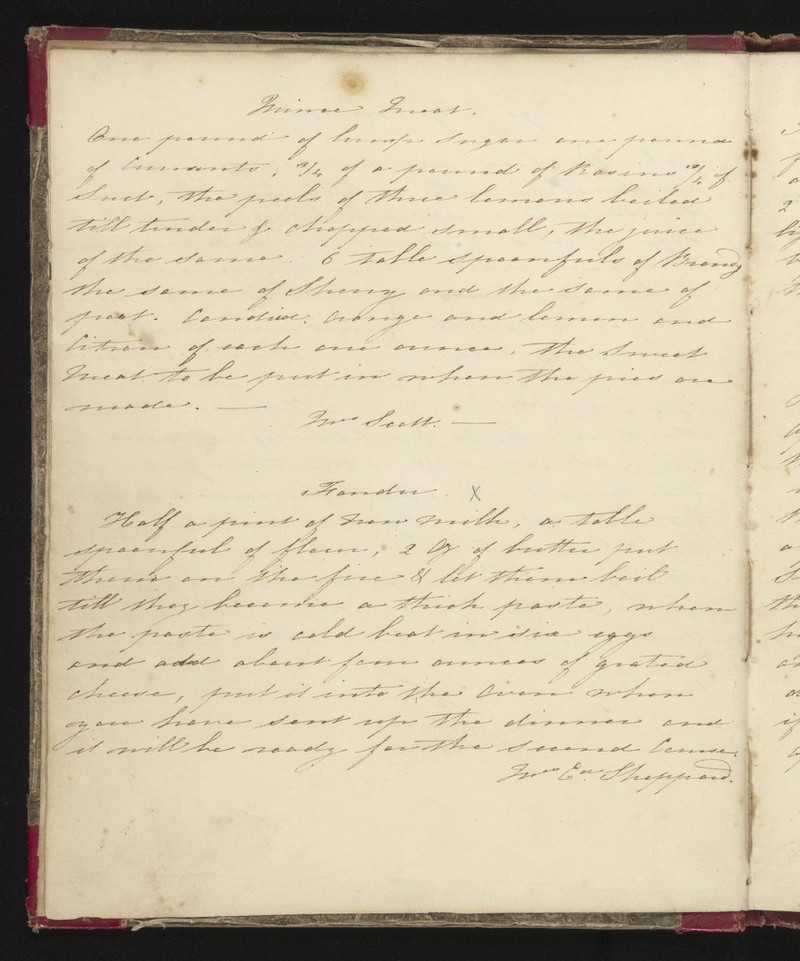 Mince Meat.
One pound of lump sugar one pound
of Currants, 3/4 of a pound of Rasins 3/4 of
Suet, the peels of three lemons boiled
till tender & chopped small, the juice
of the same. 6 table spoonfuls of Brandy
the same of Sherry and the same of
port. Candied. Orange and lemon and
Citron of each one ounce, the Sweet
Meat to be put in when the pies are
made. —
Mrs Scott. —
Fondu X
Half a pint of New Milk, a table
spoonful of flour, 2 Oz of butter put
them on the fire & let them boil
till they become a thick paste, when
the paste is cold beat in six eggs
and add about four ounces of grated
cheese, put it into the Oven when
you have sent up the dinner and
it will be ready for the second Course.
Mrs Ed. Sheppard.